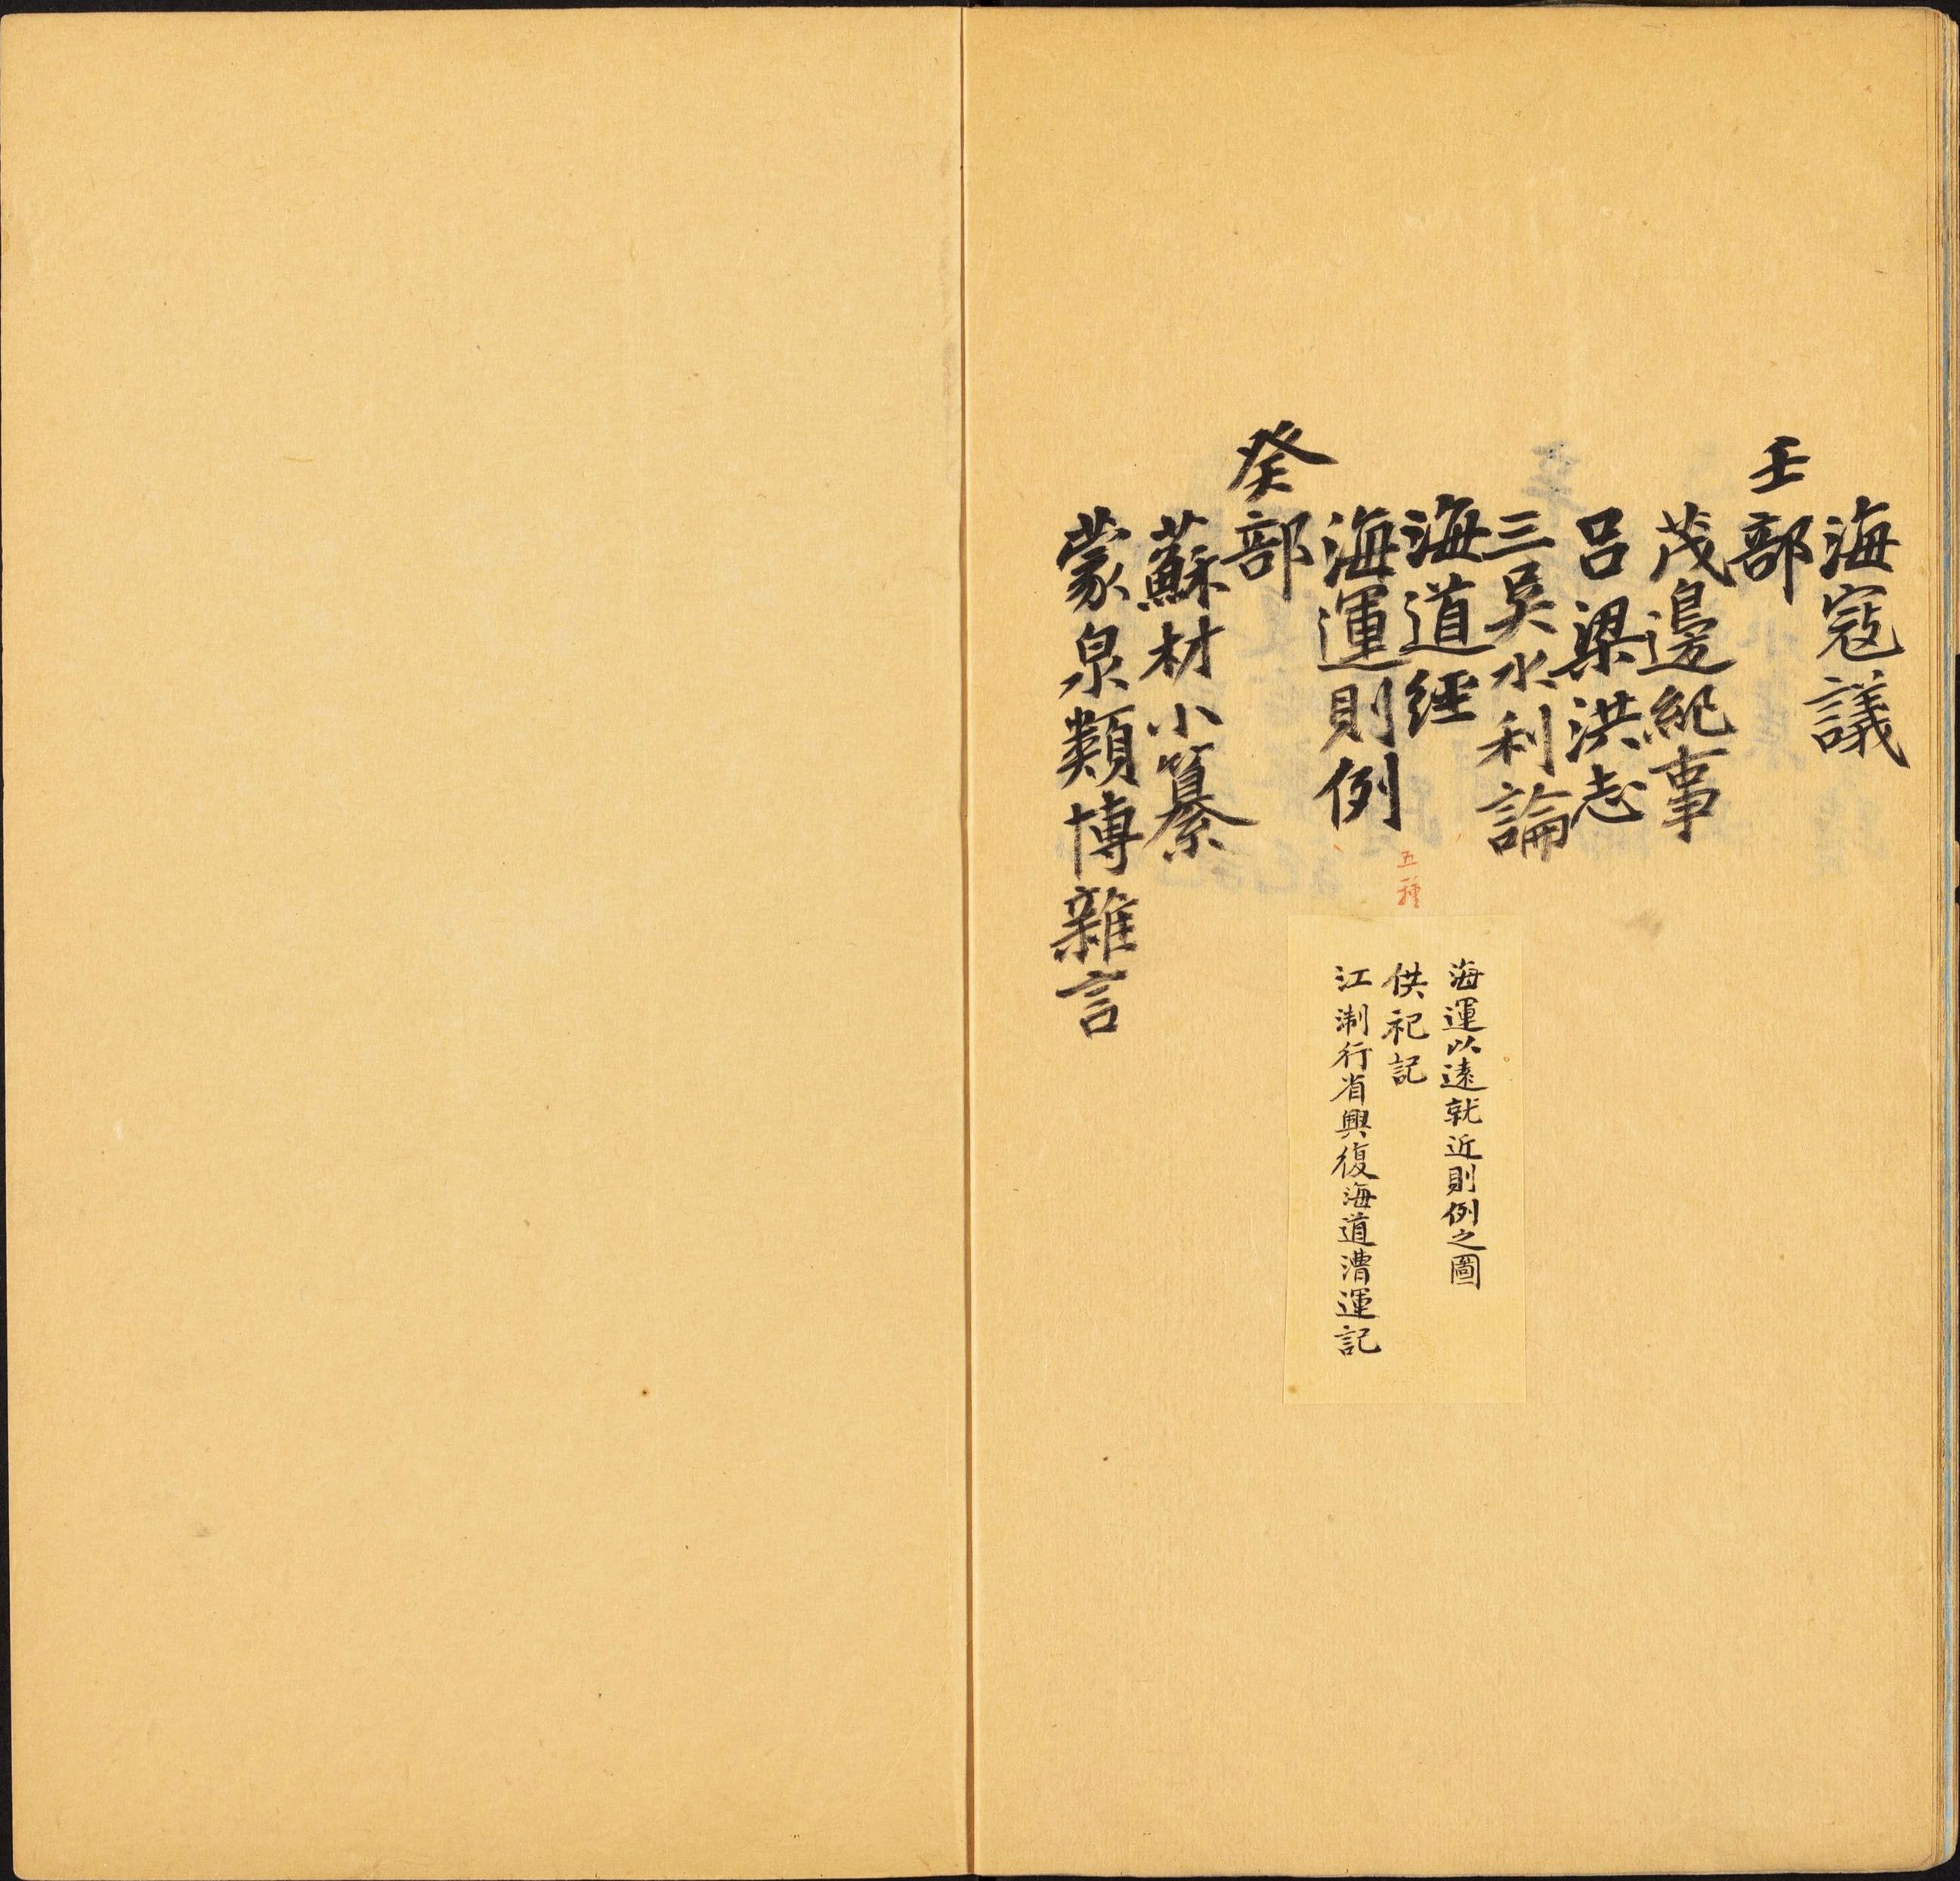 海寇議
壬部
茂邊紀事
呂梁洪志
三吳水利論
海道經
五種
海運則例
癸部
蘇材小纂
蒙泉類博雜言
海運以遠就近則例之圖
供祀記
江淛行省興復海道漕運記